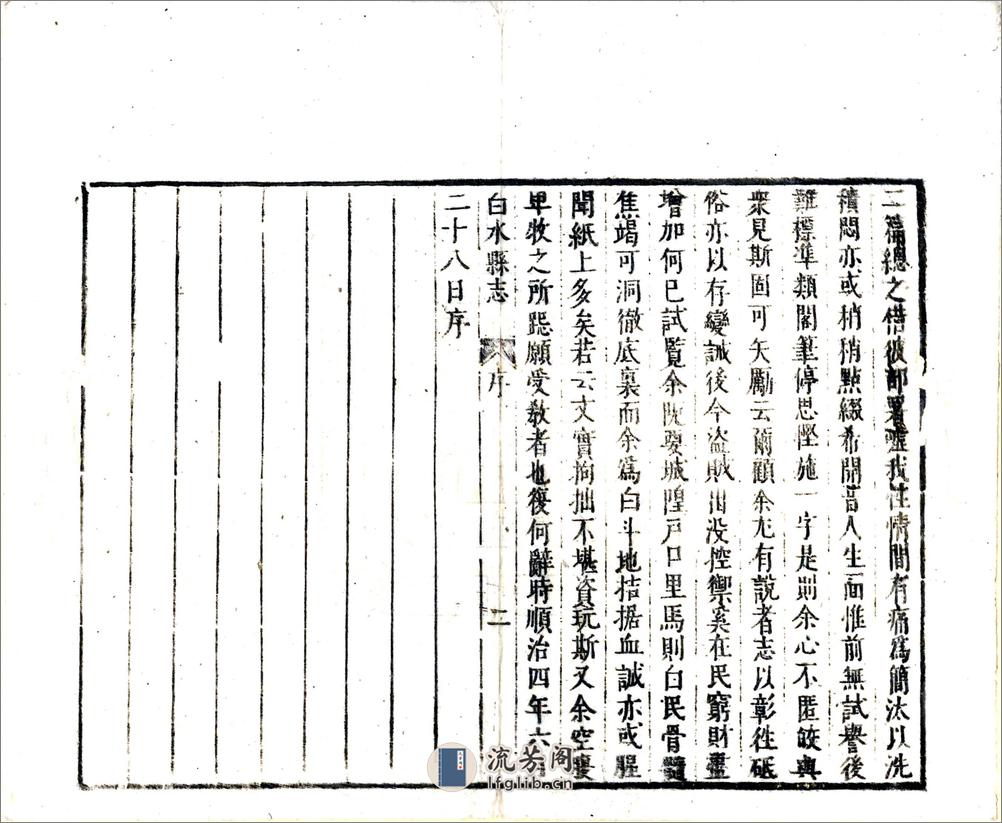 二補總之借彼部署噓我性情間有痛爲簡汰以洗
積悶亦或稍稍點綴希開昔人生面惟前無試譽後
難標準類閣筆停思慳施一字是則余心不匿皎與
衆見斯固可矢勵云爾顧余尤有説者志以彰徃砥
俗亦以存變誡後今盗賊出没控禦奚在民窮財盡
增加何已試覧余阨要城隍戸口里馬則白民骨髓
焦竭可洞徹底裏而余爲白斗地拮据血誠亦或腥
聞紙上多矣若云文實拘拙不堪資玩斯又余空疎
卑牧之所跽願受敎者也復何辭時順治四年六月
白水縣志 序 二
二十八日序
流芳阁
lfglib.cn